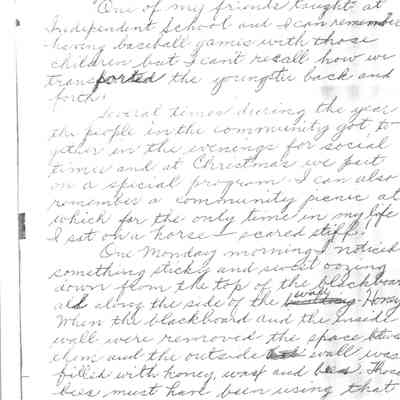 One of my friends taught at
Independent School and I can remember
having baseball games with those
children but I can't recall how we
transported the youngsters back and
forth.
Several times during the year
the people in the community got to
gether in the evenings for social
times and at Christmas we put
on a special program. I can also
remember a community picnic at
which for the only time in my life
I sat on a horse - scared stiff!
One Monday morning I noticed
something sticky and sweet oozing
down from the top of the blackboard
all along the side of the wall. Honey
When the blackboard and the inside
wall were removed the space btwn
them and the outside wall was
filled with honey, wax and bees. Those
bees must have been using that